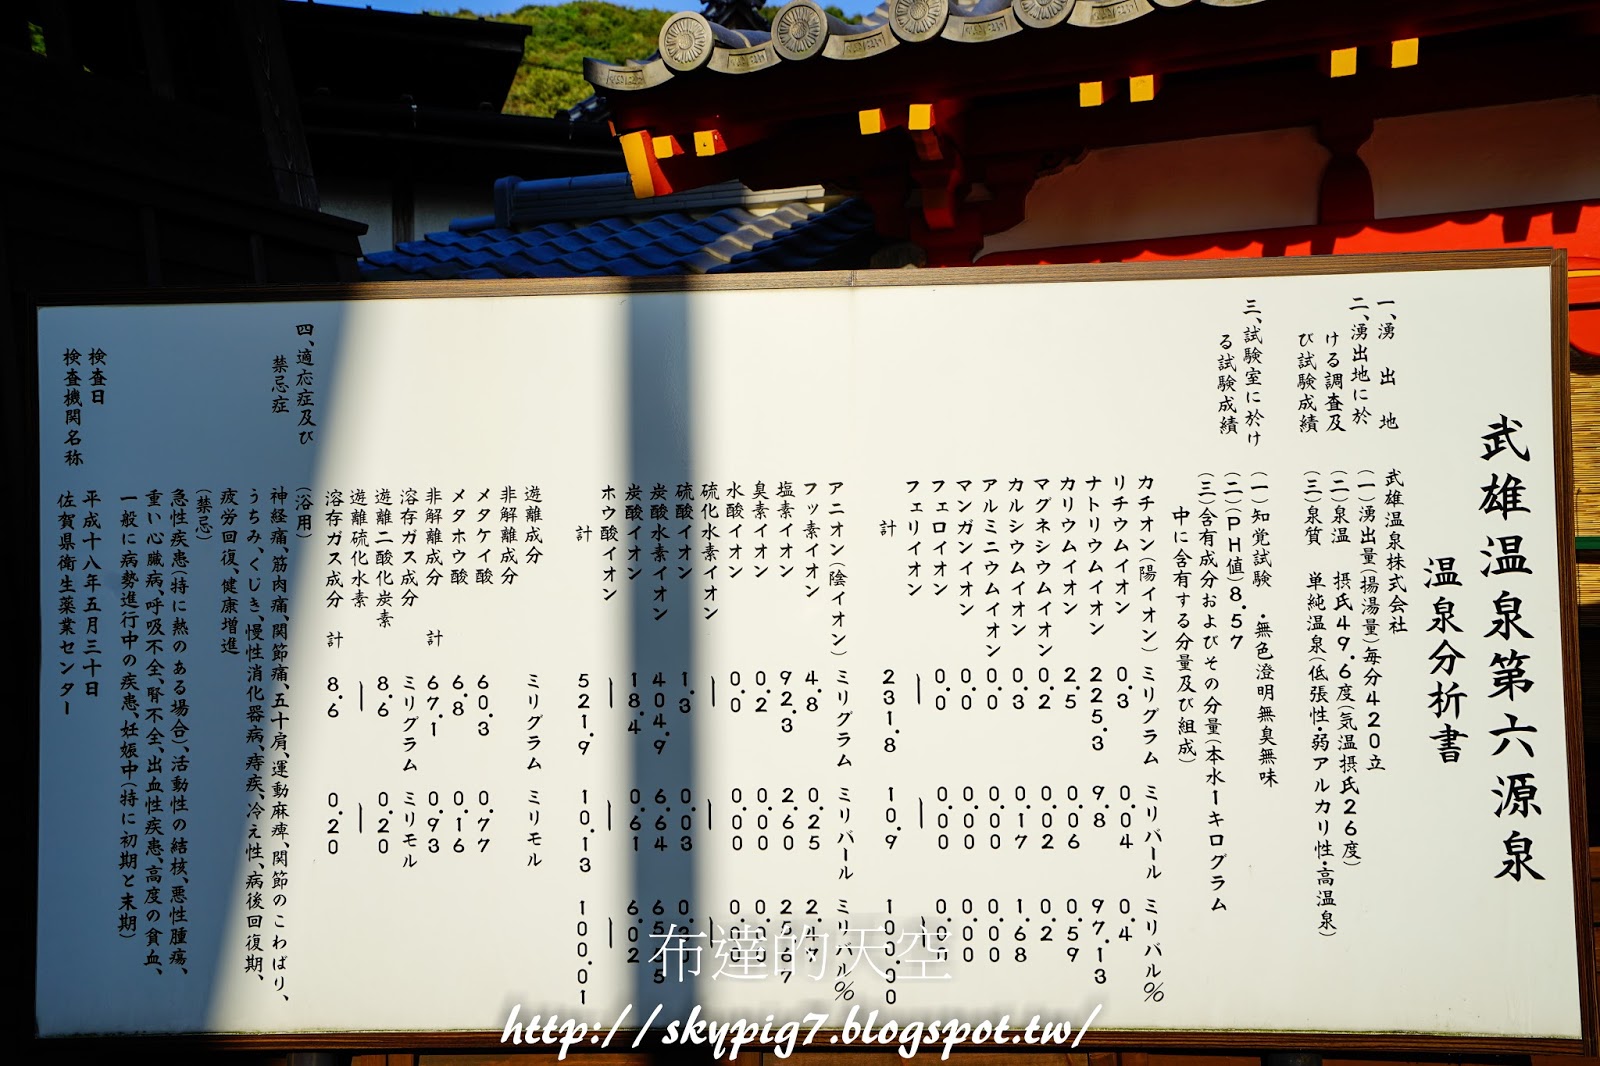 武雄温泉第六源泉
温泉分析書
一、湧出地
武雄温泉株式会社
二、湧出地に於
ける調査及
び試験成績
(一)湧出量(揚湯量)毎分420立
(二)泉温 摂氏49.6度(気温摂氏26度)
(三)泉質 単純温泉(低張性・弱アルカリ性・高温泉)
三、試験室に於け
る試験成績
(一)知覚試験 ・無色澄明無臭無味
(二)(PH値)8.57
(三)含有成分およびその分量(本水1キログラム
中に含有する分量及び組成)
カチオン(陽イオン) ミリグラム ミリバール ミリバル%
リチウムイオン 0.3 0.04 0.4
ナトリウムイオン 225.3 9.8 97.13
カリウムイオン 2.5 0.06 0.59
マグネシウムイオン 0.2 0.02 0.2
カルシウムイオン 0.3 0.17 1.68
アルミニウムイオン 0.0 0.00 0.00
マンガンイオン 0.0 0.00 0.00
フェロイオン 0.0 0.00 0.00
フェリイオン — — —
計 231.8 10.9 100.00
アニオン(陰イオン) ミリグラム ミリバール ミリバル%
フッ素イオン 4.8 0.25 2.47
塩素イオン 92.3 2.60 25.67
臭素イオン 0.2 0.00 0.00
水酸イオン 0.0 0.00 0.00
硫化水素イオン — — —
硫酸イオン 1.3 0.03
炭酸水素イオン 404.9 6.64
炭酸イオン 18.4 0.61 6.02
ホウ酸イオン — — —
計 521.9 10.13 100.01
遊離成分 ミリグラム ミリモル
非解離成分
メタケイ酸 60.3 0.77
メタホウ酸 6.8 0.16
非解離成分 計 67.1 0.93
溶存ガス成分 ミリグラム ミリモル
遊離二酸化炭素 8.6 0.20
遊離硫化水素 — —
溶存ガス成分 計 8.6 0.20
四、適応症及び
禁忌症
(浴用)
神経痛、筋肉痛、関節痛、五十肩、運動麻痺、関節のこわばり、
うちみ、くじき、慢性消化器病、痔疾、冷え性、病後回復期、
疲労回復、健康増進
(禁忌)
急性疾患(特に熱のある場合)、活動性の結核、悪性腫瘍、
重い心臓病、呼吸不全、腎不全、出血性疾患、高度の貧血、
一般に病勢進行中の疾患、妊娠中(特に初期と末期)
検査日 平成十八年五月三十日
検査機関名称 佐賀県衛生薬業センター
布達的天空
http://skypig7.blogspot.tw/